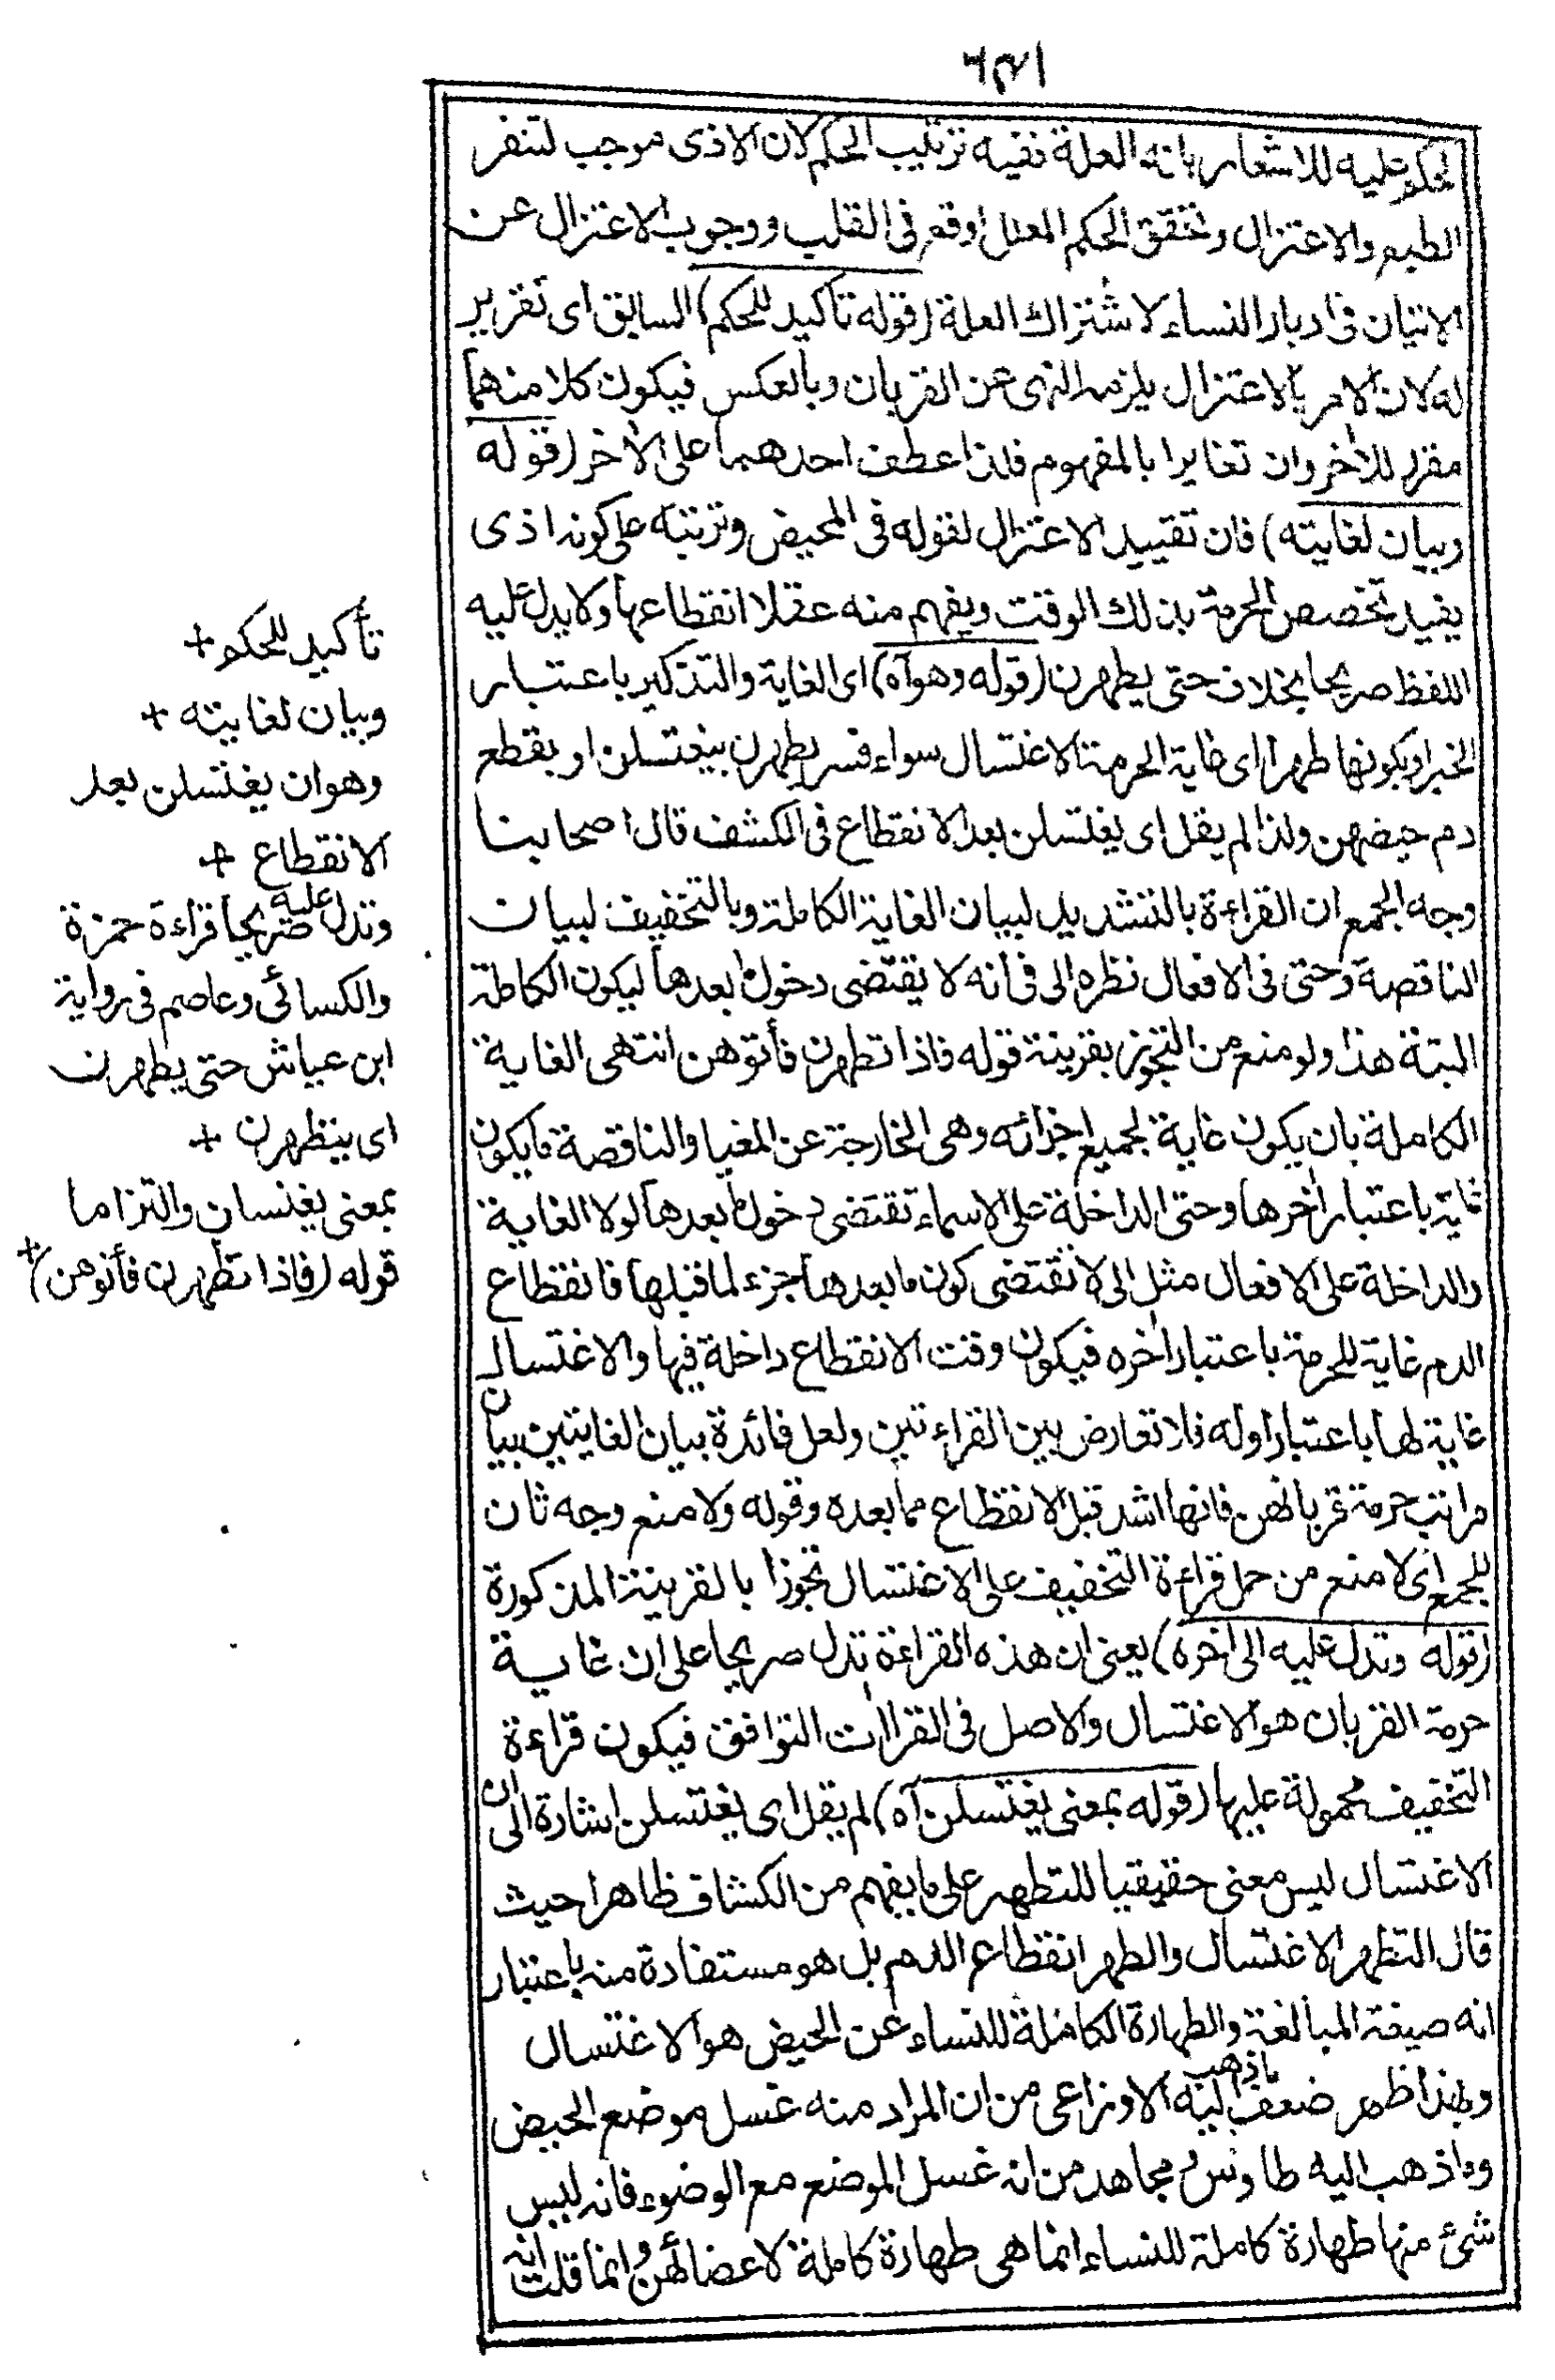 ٦٣١
لحكم عليه للاشعار بانه العلة نفيه ترتيب الحكم لان الاذى موجب لتنفر
الطبع والاعتزال وتحقق الحكم المعلل اوقع فى القلب ووجوب الاعتزال عن
الاتيان فى ادبار النساء لاشتراك العلة (قوله تاكيد للحكم) السابق اى تقرير
له لان الامر بالاعتزال يلزمه النهى عن القربان وبالعكس فيكون كلا منهما
مقررا للآخر وان تغايرا بالمفهوم فلذا عطف احدهما على الآخر (قوله
وبيان لغايته) فان تقييد الاعتزال لقوله فى المحيض وترتبه على كونه اذى
يفيد تخصص الحرمة بذلك الوقت ويفهم منه عقلا انقطاعها ولا يدل عليه
اللفظ صريحا بخلاف حتى يطهرن (قوله وهو آه) اى الغاية والتذكير باعتبار
الخبر او بكونها طهرا اى غاية الحرمة الاغتسال سواء فسر يطهرن بيغتسلن او بقطع
دم حيضهن ولذا لم يقل اى يغتسلن بعد الانقطاع فى الكشف قال اصحابنا
وجه الجمع ان القراءة بالتشديد لبيان الغاية الكاملة وبالتخفيف لبيان
الناقصة وحتى فى الافعال نظره الى فى انه لا يقتضى دخول ما بعدها ليكون الكاملة
البتة هذا ولو منع من التجوز بقرينة قوله فاذا تطهرن فأتوهن انتهى الغاية
الكاملة بان يكون غاية لجميع اجزائه وهى الخارجة عن المغيا والناقصة ما يكون
غاية باعتبار آخرها وحتى الداخلة على الاسماء تقتضى دخول ما بعدها لولا الغاية
والداخلة على الافعال مثل الى لا تقتضى كون ما بعدها جزء لما قبلها فانقطاع
الدم غاية للحرمة باعتبار آخره فيكون وقت الانقطاع داخلة فيها والاغتسال
غاية لها باعتبار اوله فلا تعارض بين القراءتين ولعل فائدة بيان الغايتين بيان
مراتب حرمة قربانهن فانها اشد قبل الانقطاع مما بعده وقوله ولا منع وجه ثان
للجمع اى لا منع من حمل قراءة التخفيف على الاغتسال تجوزا بالقرينة المذكورة
(قوله وتدل عليه الى آخره) يعنى ان هذه القراءة تدل صريحا على ان غاية
حرمة القربان هو الاغتسال والاصل فى القراآت التوافق فيكون قراءة
التخفيف محمولة عليها (قوله بمعنى يغتسلن آه) لم يقل اى يغتسلن اشارة الى ان
الاغتسال ليس معنى حقيقيا للتطهر على ما يفهم من الكشاف ظاهرا حيث
قال التطهر الاغتسال والطهر انقطاع الدم بل هو مستفادة منه باعتبار
انه صيغة المبالغة والطهارة الكاملة للنساء عن الحيض هو الاغتسال
وبهذا ظهر ضعف ما ذهب اليه الاوزاعى من ان المراد منه غسل موضع الحيض
وما ذهب اليه طاوس ومجاهد من انه غسل الموضع مع الوضوء فانه ليس
شئ منها طهارة كاملة للنساء انما هى طهارة كاملة لاعضائهن وانما قلت انه
تأكيد للحكم +
وبيان لغايته +
وهو ان يغتسلن بعد
الانقطاع +
وتدل عليه صريحا قراءة حمزة
والكسائى وعاصم فى رواية
ابن عياش حتى يطهرن
اى يتطهرن +
بمعنى يغتسلن والتزاما
قوله (فاذا تطهرن فأتوهن) +